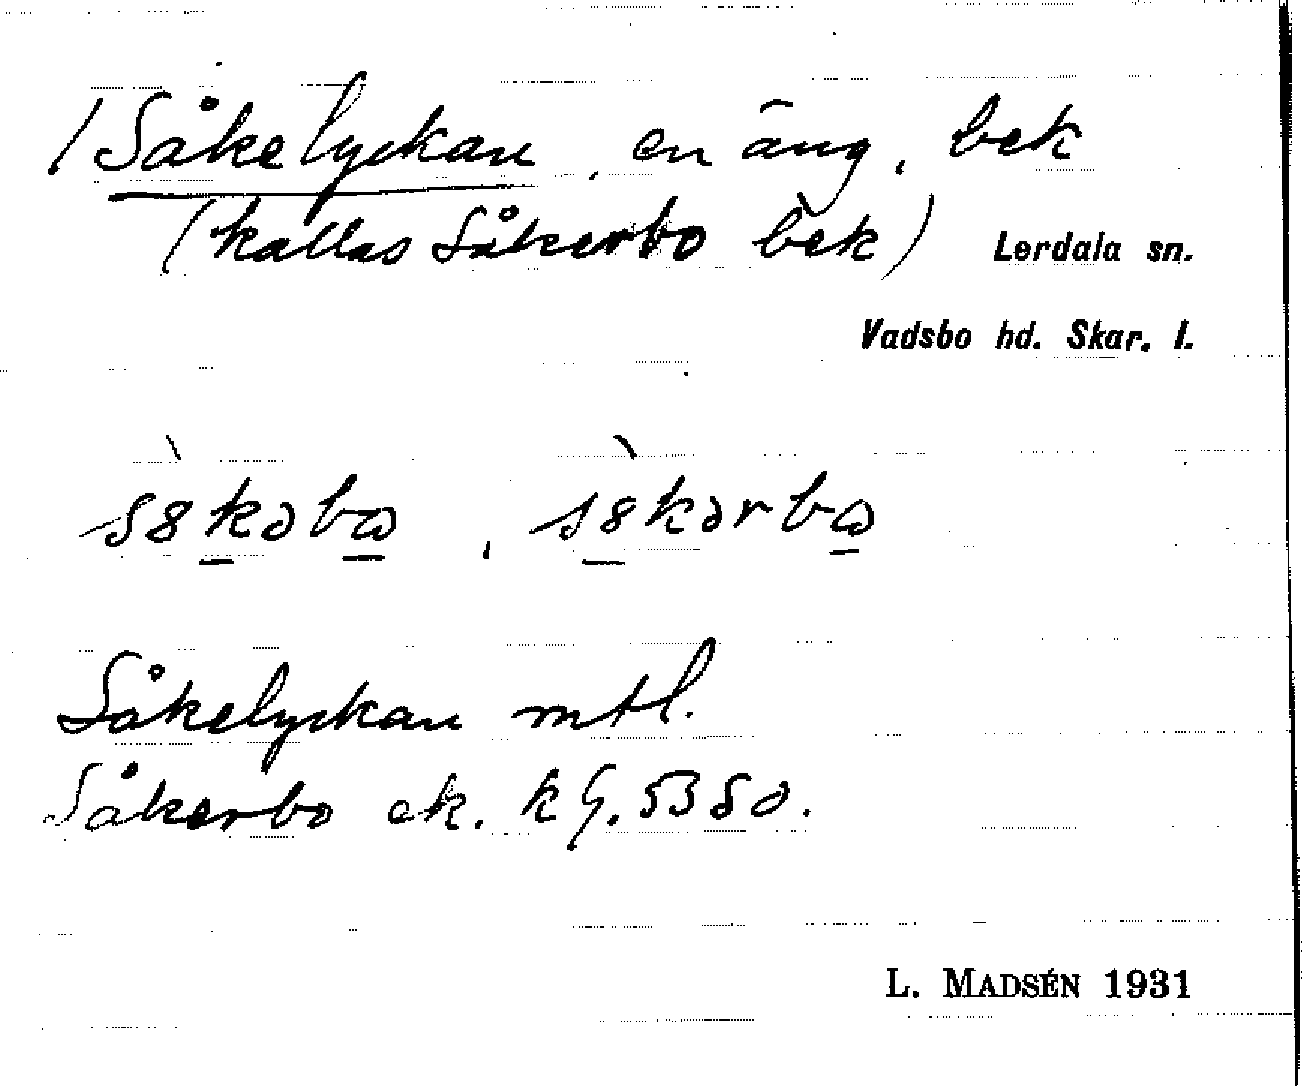 / Såkelyckan, en äng, bek
(kallas Såkerbo bek) Lerdala sn.
Vadsbo hd. Skar. l.
s8kəbɷ, s8kərbɷ
Såkelyckan mtl.
Såkerbo ek. k G.
L. MADSÉN 1931